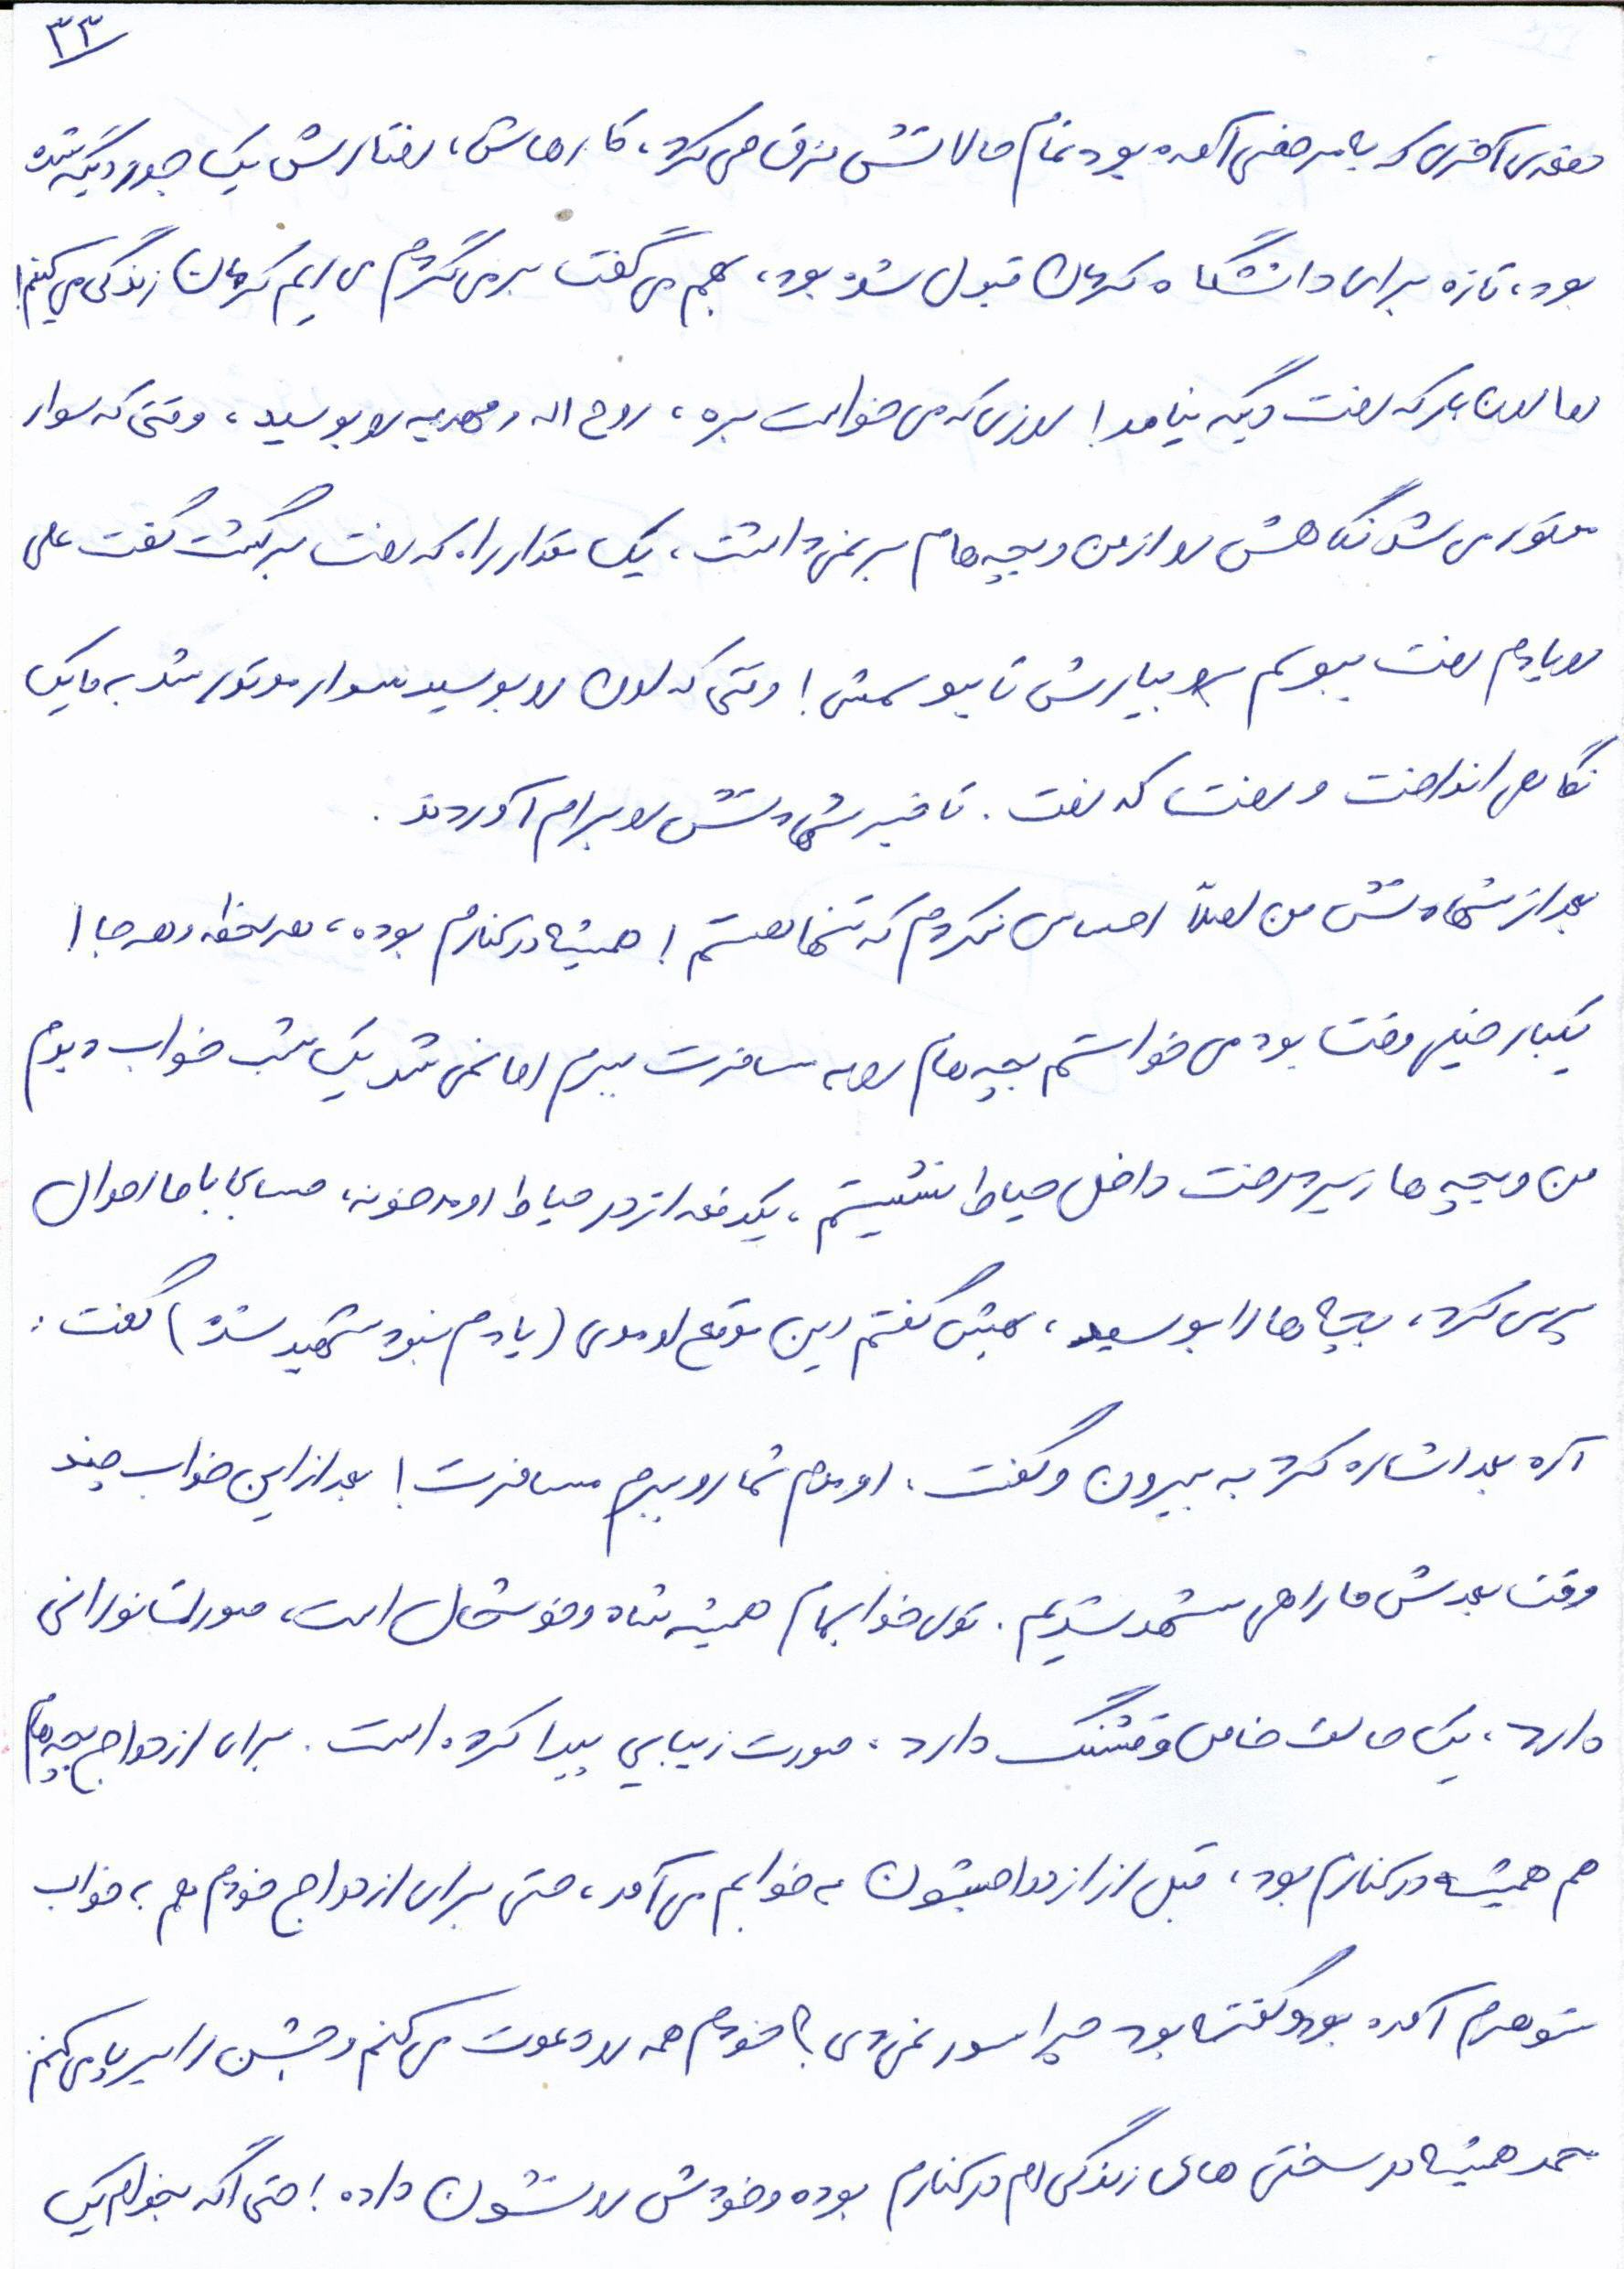 ۳۳
دفعه‌ی آخری که به مرخصی آمده بود تمام حالاتش فرق می کرد، کارهاش، رفتارش یک جور دیگه شده
بود، تازه برای دانشگاه کرمان قبول شده بود، بهم می گفت بر می گردم می ریم کرمان زندگی می کنیم!
اما اون بار که رفت دیگه نیامد! روزی که می خواست بره، روح اله و مهدیه رو بوسید، وقتی که سوار
موتور می شد نگاهش رو از من و بچه هام بر نمی داشت، یک مقدار راه که رفت برگشت گفت علی
رو یادم رفت ببوسم برو بیارش تا ببوسمش! وقتی که اون رو بوسید سوار موتور شد به ما یک
نگاهی انداخت و رفت که رفت. تا خبر شهادتش رو برام آوردند.
بعد از شهادتش من اصلاً احساس نکردم که تنها هستم! همیشه در کنارم بوده، هر لحظه و هر جا!
یکبار خیلی وقت بود می خواستم بچه هام رو به مسافرت ببرم اما نمی شد یک شب خواب دیدم
من و بچه ها زیر درخت داخل حیاط نشستیم، یکدفعه از در حیاط اومد خونه، حسابی با ما احوال
پرسی کرد، بچه ها را بوسید، بهش گفتم این موقع اومدی (یادم نبود شهید شده) گفت:
آره بعد اشاره کرد به بیرون و گفت، اومدم شما رو ببرم مسافرت! بعد از این خواب چند
وقت بعدش ما راهی مشهد شدیم. توی خوابهام همیشه شاد و خوشحال است، صورت نورانی
دارد، یک حالت خاص و قشنگ دارد، صورت زیبایی پیدا کرده است. برای ازدواج بچه هام
هم همیشه در کنارم بود، قبل از ازدواجشون به خوابم می آمد، حتی برای ازدواج خودم هم به خواب
شوهرم آمده بود و گفته بود چرا سور نمی دی؟ خودم همه رو دعوت می کنم و جشن را بر پا می کنم
محمد همیشه در سختی های زندگی ام در کنارم بوده و خودش رو نشون داده! حتی اگه بخوام یک